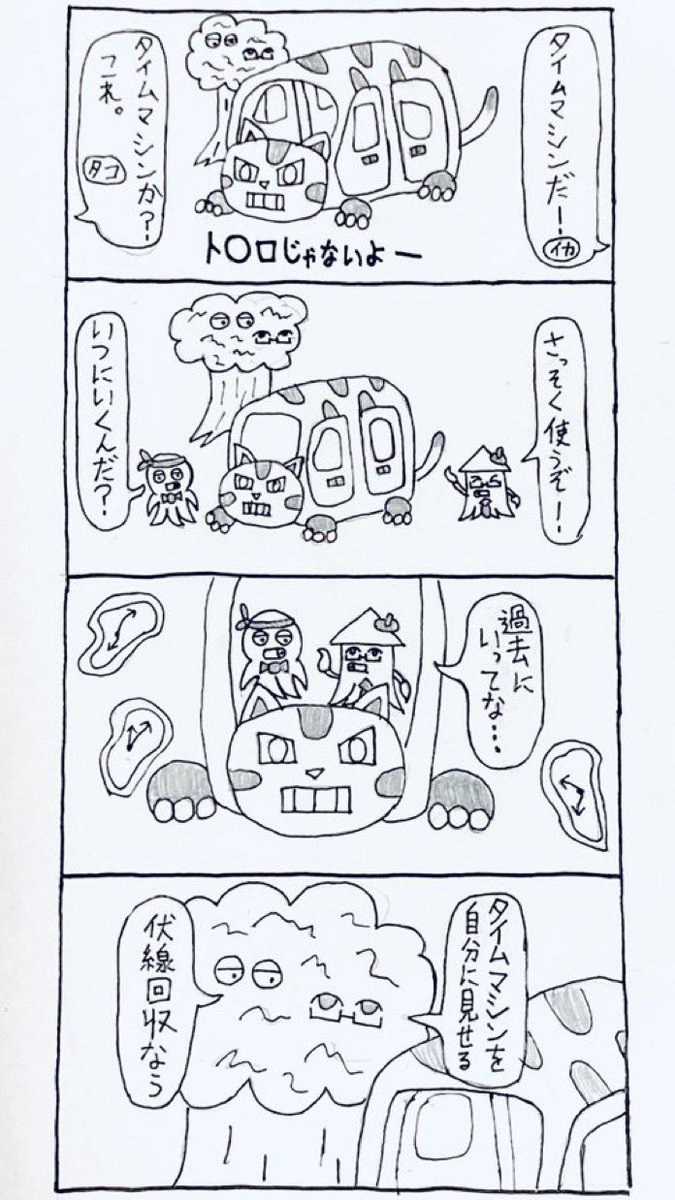 タイムマシンだー！
イカ
タイムマシンか？
これ。
タコ
ト〇ロじゃないよー
さっそく使うぞー！
いつにいくんだ？
過去に
いってな…
タイムマシンを
自分に見せる
伏線回収なう